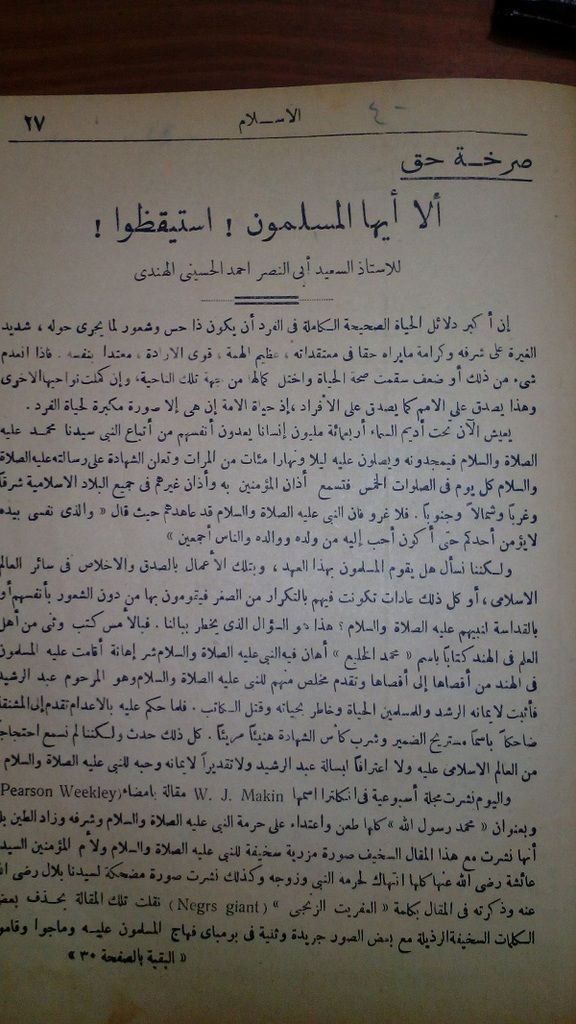 ٢٧ الاسلام ٤٠
صرخة حق
ألا أيها المسلمون ! استيقظوا !
للاستاذ السعيد أبى النصر احمد الحسينى الهندى
إن أكبر دلائل الحياة الصحيحة الكاملة فى الفرد أن يكون ذا حس وشعور لما يجرى حوله ، شديد
الغيرة على شرفه وكرامة مايراه حقا فى معتقداته ، عظيم الهمة ، قوى الارادة ، معتدا بنفسه . فاذا انعدم
شىء من ذلك أو ضعف سقمت صحة الحياة واختل كمالها من جهة تلك الناحية، وإن كملت نواحيها الاخرى
وهذا يصدق على الامم كما يصدق على الأفراد ،إذ حياة الامة إن هى إلا صورة مكبرة لحياة الفرد .
يعيش الآن تحت أديم السماء أربعمائة مليون إنسانا يعدون أنفسهم من أتباع النبى سيدنا محمد عليه
الصلاة والسلام فيمجدونه ويصلون عليه ليلا ونهارا مئات من المرات وتعلن الشهادة على رسالته عليه الصلاة
والسلام كل يوم فى الصلوات الخمس فتسمع أذان المؤمنين به وأذان غيرهم فى جميع البلاد الاسلامية شرقا
وغرباً وشمالاً وجنوباً . فلا غرو فان النبى عليه الصلاة والسلام قد عاهدهم حيث قال « والذى نفسى بيده
لايؤمن أحدكم حتى أكون أحب إليه من ولده ووالده والناس أجمعين »
ولكننا نسأل هل يقوم المسلمون بهذا العهد ، وبتلك الأعمال بالصدق والاخلاص فى سائر العالم
الاسلامى ، أو كل ذلك عادات تكونت فيهم بالتكرار من الصغر فيقومون بها من دون الشعور بأنفسهم أو
بالقداسة لنبيهم عليه الصلاة والسلام ؟ هذا هو السؤال الذى يخطر ببالنا . فبالأمس كتب وثنى من أهل
العلم فى الهند كتابا باسم « محمد الخليع » أهان فيه النبى عليه الصلاة والسلام شر إهانة أقامت عليه المسلمون
فى الهند من أقصاها إلى أقصاها وتقدم مخلص منهم للنبى عليه الصلاة والسلام وهو المرحوم عبد الرشيد
فأثبت لايمانه الرشد وللمسلمين الحياة وخاطر بحياته وقتل الكاتب . فلما حكم عليه بالاعدام تقدم إلى المشنقة
ضاحكاً باسماً مستريح الضمير وشرب كأس الشهادة هنيئاً مريئاً . كل ذلك حدث ولكننا لم نسمع احتجاجاً
من العالم الاسلامى عليه ولا اعترافا لبسالة عبد الرشيد ولا تقديراً لايمانه وحبه للنبى عليه الصلاة والسلام
واليوم نشرت مجلة أسبوعية فى انكلترا اسمها W. J. Makin مقالة بامضاء (Pearson Weekley
وبعنوان « محمد رسول الله » كلها طعن واعتداء على حرمة النبى عليه الصلاة والسلام وشرفه وزاد الطين بل
أنها نشرت مع هذا المقال السخيف صورة مزرية سخيفة للنبى عليه الصلاة والسلام ولأم المؤمنين السيد
عائشة رضى الله عنها كلها انتهاك لحرمه النبى وزوجه وكذلك نشرت صورة مضحكة لسيدنا بلال رضى الله
عنه وذكرته فى المقال بكلمة « العفريت الزنجى » (Negrs giant) نقلت تلك المقالة بحذف بعض
الكلمات السخيفة الرذيلة مع بعض الصور جريدة وثنية فى بومباى فهاج المسلمون عليه وماجوا وقامو
« البقية بالصفحة ٣٠ »